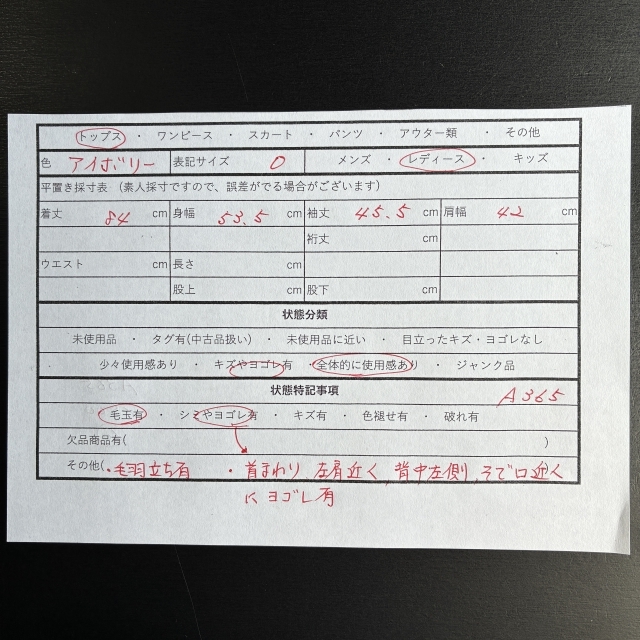 トップス ・ ワンピース ・ スカート ・ パンツ ・ アウター類 ・ その他
色 アイボリー 表記サイズ 0 メンズ ・ レディース ・ キッズ
平置き採寸表 (素人採寸ですので、誤差がでる場合がございます)
着丈 84 cm 身幅 53.5 cm 袖丈 45.5 cm 肩幅 42 cm
裄丈 cm
ウエスト cm 長さ cm
股上 cm 股下 cm
状態分類
未使用品 ・ タグ有(中古品扱い) ・ 未使用品に近い ・ 目立ったキズ・ヨゴレなし
少々使用感あり ・ キズやヨゴレ有 ・ 全体的に使用感あり ・ ジャンク品
状態特記事項 A365
毛玉有 ・ シミやヨゴレ有 ・ キズ有 ・ 色褪せ有 ・ 破れ有
欠品商品有( )
その他( ・毛羽立ち有 ・首まわり 左肩近く 背中左側 そで口近く
に ヨゴレ有